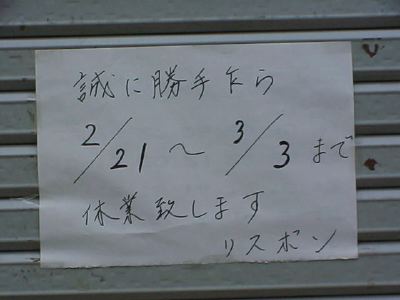 誠に勝手乍ら
2/21～3/3まで
休業致します
リスボン